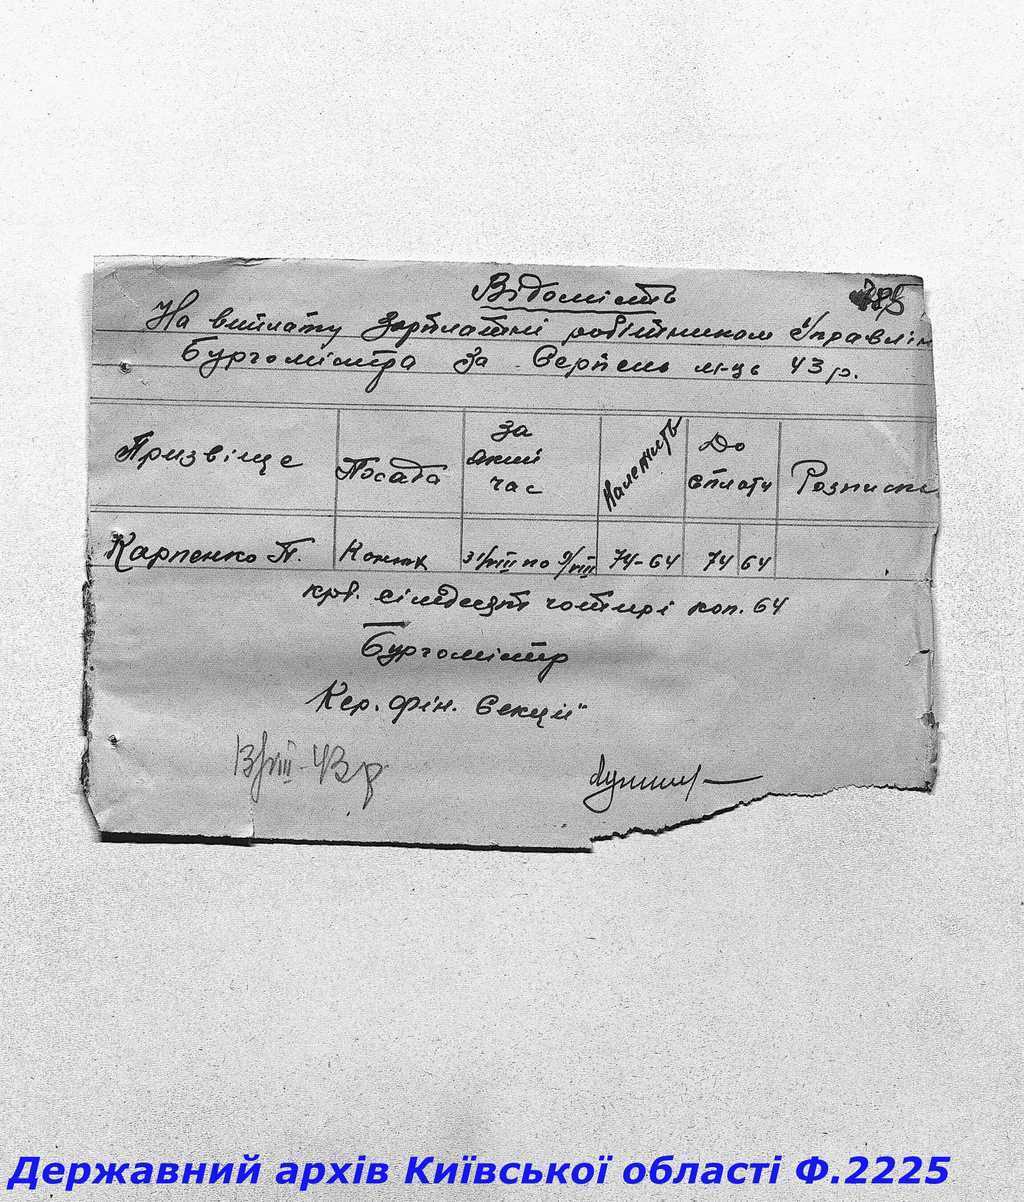 Відомість
На виплату зарплатні робітником Управлін
Бургомістра за Серпень м-ць 43 р.
Призвіще Посада За який час Належить До сплати Розписка
Карпенко П. 31/VIII по 9/VIII 74-64 74 64
крв. сімдесят чотирі коп. 64
Бургомістр
Кер. фін. Секції
13/VIII-43 р
Державний архів Київської області Ф.2225